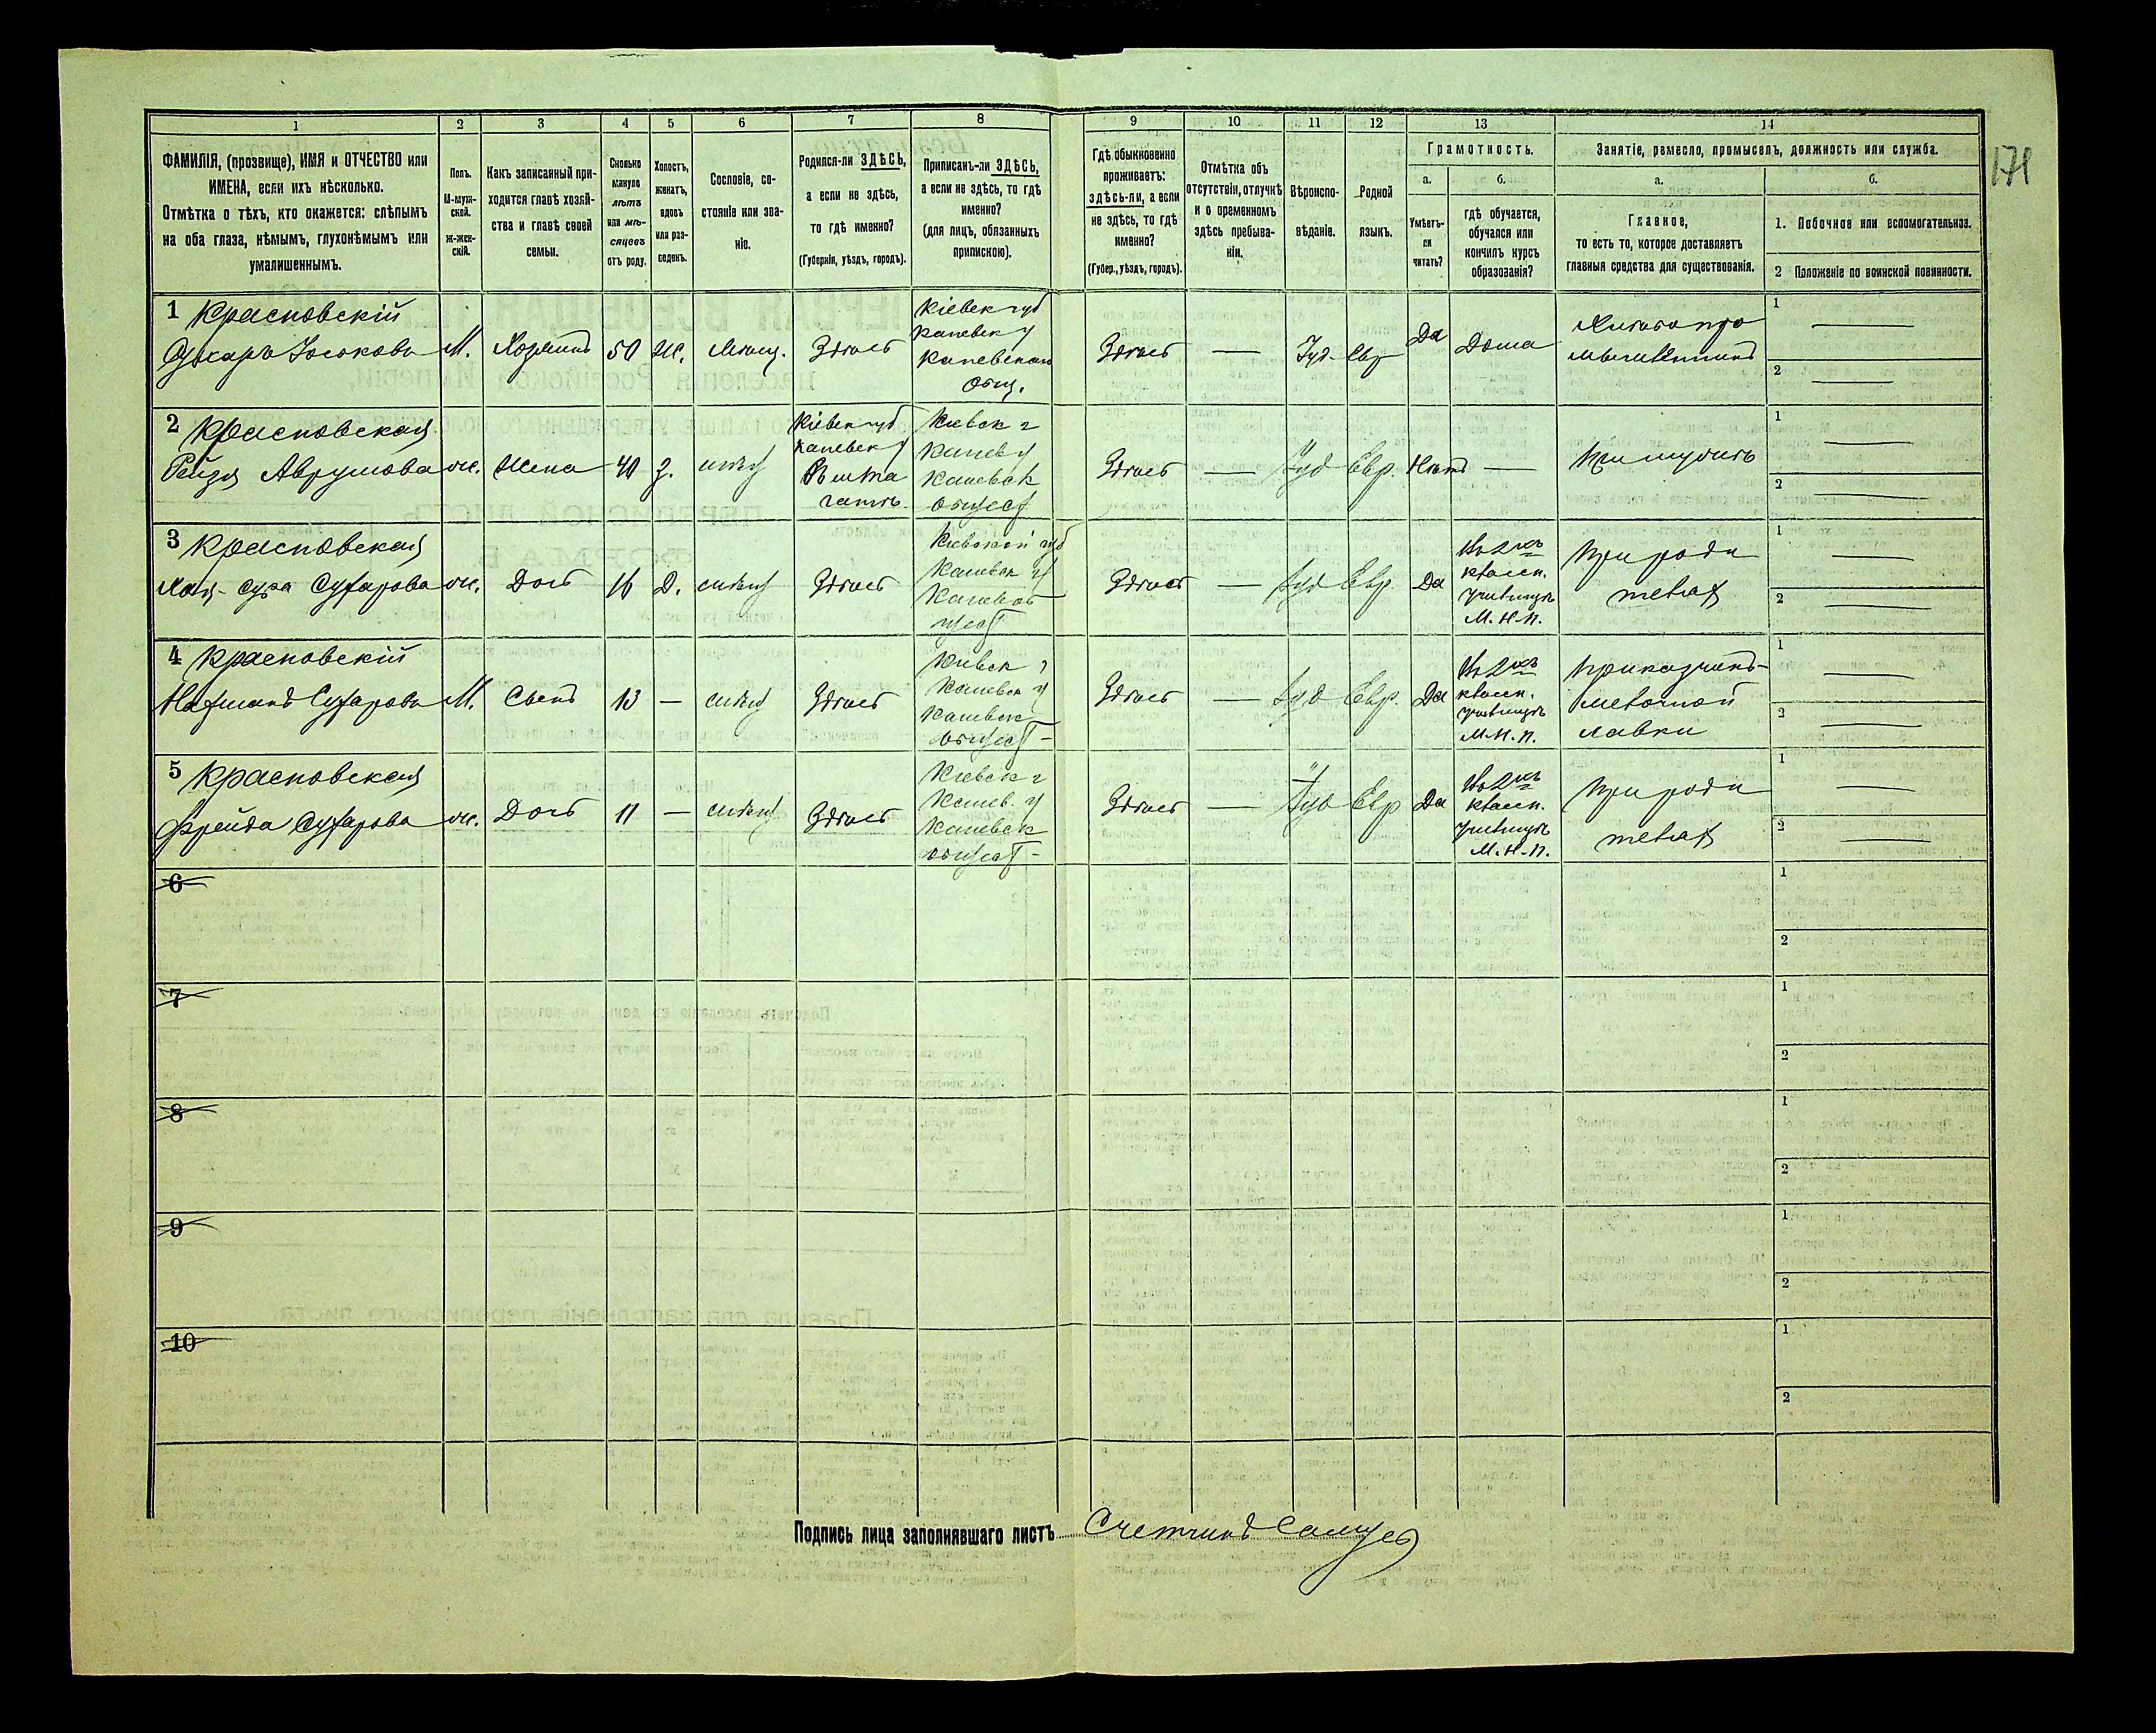 1
2
3
4
5
6
7
8
9
10
11
12
13
14
ФАМИЛІЯ, (прозвище), ИМЯ и ОТЧЕСТВО или
ИМЕНА, если ихъ нѣсколько.
Отмѣтка о тѣхъ, кто окажется: слѣпымъ
на оба глаза, нѣмымъ, глухонѣмымъ или
умалишеннымъ.
Полъ.
М-муж-
ской.
ж-жен-
скій.
Какъ записанный при-
ходится главѣ хозяй-
ства и главѣ своей
семьи.
Сколько
минуло
лѣтъ
или мѣ-
сяцевъ
отъ роду.
Холостъ,
женатъ,
вдовъ
или раз-
веденъ.
Сословіе, со-
стояніе или зва-
ніе.
Родился-ли ЗДѢСЬ,
а если не здѣсь,
то гдѣ именно?
(Губернія, уѣздъ, городъ).
Приписанъ-ли ЗДѢСЬ,
а если не здѣсь, то гдѣ
именно?
(для лицъ, обязанныхъ
припискою).
Гдѣ обыкновенно
проживаетъ:
здѣсь-ли, а если
не здѣсь, то гдѣ
именно?
(Губер., уѣздъ, городъ).
Отмѣтка объ
отсутствіи, отлучкѣ
и о временномъ
здѣсь пребыва-
ніи.
Вѣроиспо-
вѣданіе.
Родной
языкъ.
Грамотность.
а.
Умѣетъ-
ли
читать?
б.
гдѣ обучается,
обучался или
кончилъ курсъ
образованія?
Занятіе, ремесло, промыселъ, должность или служба.
а.
Главное,
то есть то, которое доставляетъ
главныя средства для существованія.
б.
1. Побочное или вспомогательное.
2 Положеніе по воинской повинности.
1 Красновскій
М. Хозяинъ 50 Ж. Мѣщ. Здѣсь
Кіевск губ
Каневск у
Каневскаго
общ.
Здѣсь — Іуд. Евр Да Дома
1 —
2 —
2 Красновская
Рейзя Аврумова ж. Жена 40 З.
Кіевск губ
Каневск у
Кіевск г
Канев у
Каневск
общест
Здѣсь — Іуд Евр. Нѣтъ — При мужѣ
1 —
2 —
3 Красновская
ж. Дочь 16 Д. Здѣсь
Кіевской губ
Каневск у
Здѣсь — Іуд Евр. Да
Въ 2хъ
классн.
училищѣ
М. Н. П.
При роди
теляхъ
1 —
2 —
4 Красновскій
М. Сынъ 13 — Здѣсь
Кіевск г
Каневск у
Каневск
общест —
Здѣсь — Іуд Евр. Да
Въ 2хъ
классн.
училищѣ
М. Н. П.
Приказчикъ
мелочной
лавки
1 —
2 —
5 Красновская
Фрейда ж. Дочь 11 — Здѣсь
Кіевск г
Канев. у
Каневск
общест —
Здѣсь — Іуд Евр Да
Въ 2хъ
классн.
училищѣ
М. Н. П.
При роди
теляхъ
1 —
2 —
6
1
2
7
1
2
8
1
2
9
1
2
10
1
2
Подпись лица заполнявшаго листъ Счетчикъ